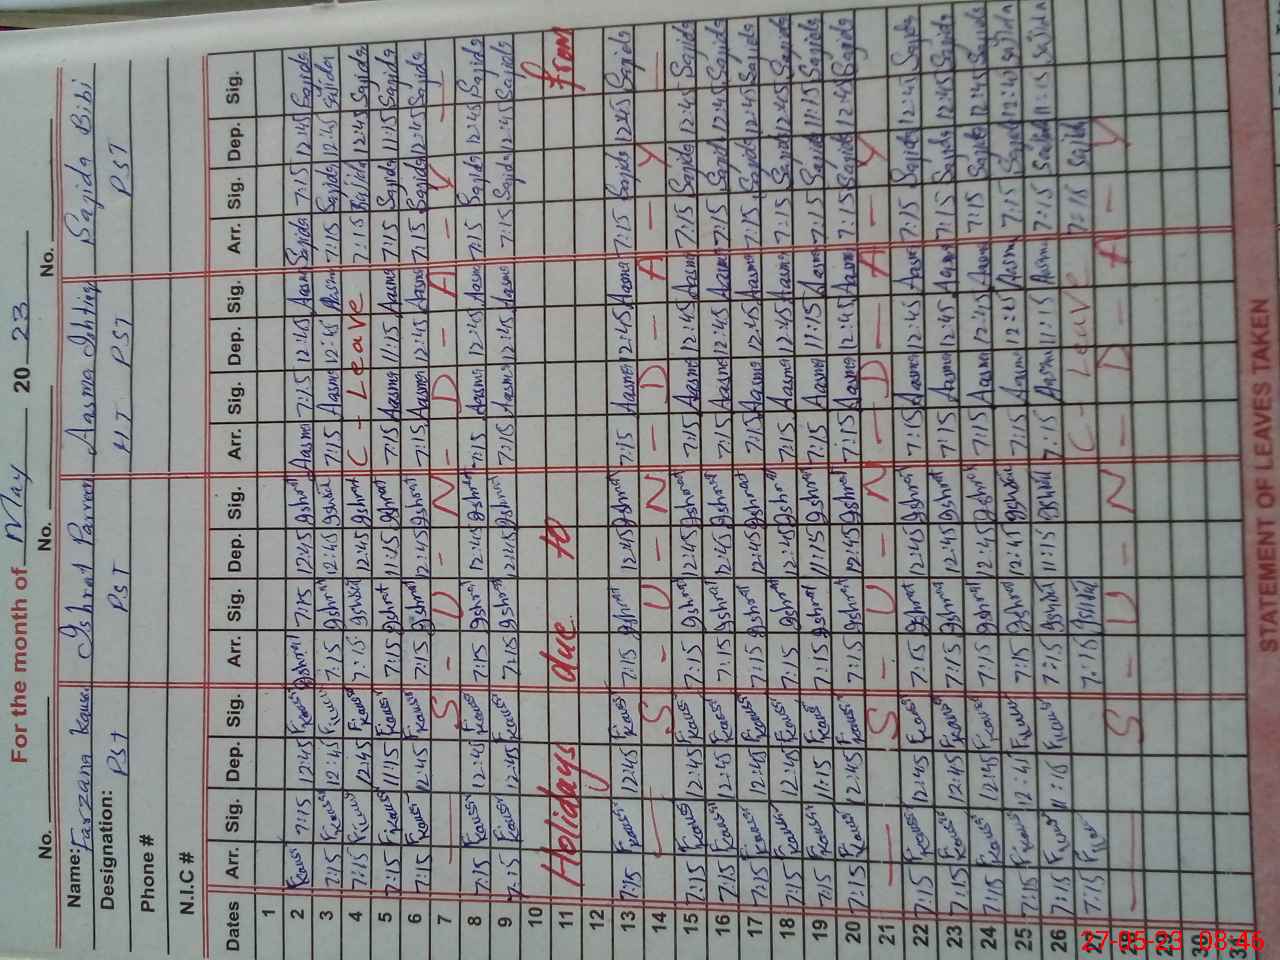 For the month of May 20 23
No. No. No.
Name: Farzana Kausar Ishrat Parveen Aasma Ishtiaq Sajida Bibi
Designation: PST PST HT PST PST
Phone #
N.I.C #
Dates Arr. Sig. Dep. Sig. Arr. Sig. Dep. Sig. Arr. Sig. Dep. Sig. Arr. Sig. Dep. Sig.
1
2 Fkausr 7:15 12:45 Fkausr gshrat 7:15 12:45 gshrat Aasma 7:15 12:45 Aasma Sajida 7:15 12:45 Sajida
3 7:15 Fkausr 12:45 Fkausr 7:15 gshrat 12:45 gshrat 7:15 Aasma 12:45 Aasma 7:15 Sajida 12:45 Sajida
4 7:15 Fkausr 12:45 Fkausr 7:15 gshrat 12:45 gshrat C - Leave 7:15 Sajida 12:45 Sajida
5 7:15 Fkausr 11:15 Fkausr 7:15 gshrat 11:15 gshrat 7:15 Aasma 11:15 Aasma 7:15 Sajida 11:15 Sajida
6 7:15 Fkausr 12:45 Fkausr 7:15 gshrat 12:45 gshrat 7:15 Aasma 12:45 Aasma 7:15 Sajida 12:45 Sajida
7 — S - U - N - D - A - Y —
8 7:15 Fkausr 12:45 Fkausr 7:15 gshrat 12:45 gshrat 7:15 Aasma 12:45 Aasma 7:15 Sajida 12:45 Sajida
9 7:15 Fkausr 12:45 Fkausr 7:15 gshrat 12:45 gshrat 7:15 Aasma 12:45 Aasma 7:15 Sajida 12:45 Sajida
10
11 Holidays due to from
12
13 7:15 Fkausr 12:45 Fkausr 7:15 gshrat 12:45 gshrat 7:15 Aasma 12:45 Aasma 7:15 Sajida 12:45 Sajida
14 — S - U - N - D - A - Y —
15 7:15 Fkausr 12:45 Fkausr 7:15 gshrat 12:45 gshrat 7:15 Aasma 12:45 Aasma 7:15 Sajida 12:45 Sajida
16 7:15 Fkausr 12:45 Fkausr 7:15 gshrat 12:45 gshrat 7:15 Aasma 12:45 Aasma 7:15 Sajida 12:45 Sajida
17 7:15 Fkausr 12:45 Fkausr 7:15 gshrat 12:45 gshrat 7:15 Aasma 12:45 Aasma 7:15 Sajida 12:45 Sajida
18 7:15 Fkausr 12:45 Fkausr 7:15 gshrat 12:45 gshrat 7:15 Aasma 12:45 Aasma 7:15 Sajida 12:45 Sajida
19 7:15 Fkausr 11:15 Fkausr 7:15 gshrat 11:15 gshrat 7:15 Aasma 11:15 Aasma 7:15 Sajida 11:15 Sajida
20 7:15 Fkausr 12:45 Fkausr 7:15 gshrat 12:45 gshrat 7:15 Aasma 12:45 Aasma 7:15 Sajida 12:45 Sajida
21 — S - U - N - D - A - Y
22 7:15 Fkausr 12:45 Fkausr 7:15 gshrat 12:45 gshrat 7:15 Aasma 12:45 Aasma 7:15 Sajida 12:45 Sajida
23 7:15 Fkausr 12:45 Fkausr 7:15 gshrat 12:45 gshrat 7:15 Aasma 12:45 Aasma 7:15 Sajida 12:45 Sajida
24 7:15 Fkausr 12:45 Fkausr 7:15 gshrat 12:45 gshrat 7:15 Aasma 12:45 Aasma 7:15 Sajida 12:45 Sajida
25 7:15 Fkausr 12:45 Fkausr 7:15 gshrat 12:45 gshrat 7:15 Aasma 12:45 Aasma 7:15 Sajida 12:40 Sajida
26 7:15 Fkausr 11:15 Fkausr 7:15 gshrat 11:15 gshrat 7:15 Aasma 11:15 Aasma 7:15 Sajida 11:15 Sajida
27 7:15 Fkausr 7:15 gshrat C - Leave 7:15 Sajida
28 — S - U - N - D - A - Y
29
30
31
STATEMENT OF LEAVES TAKEN
27-05-23 08:46